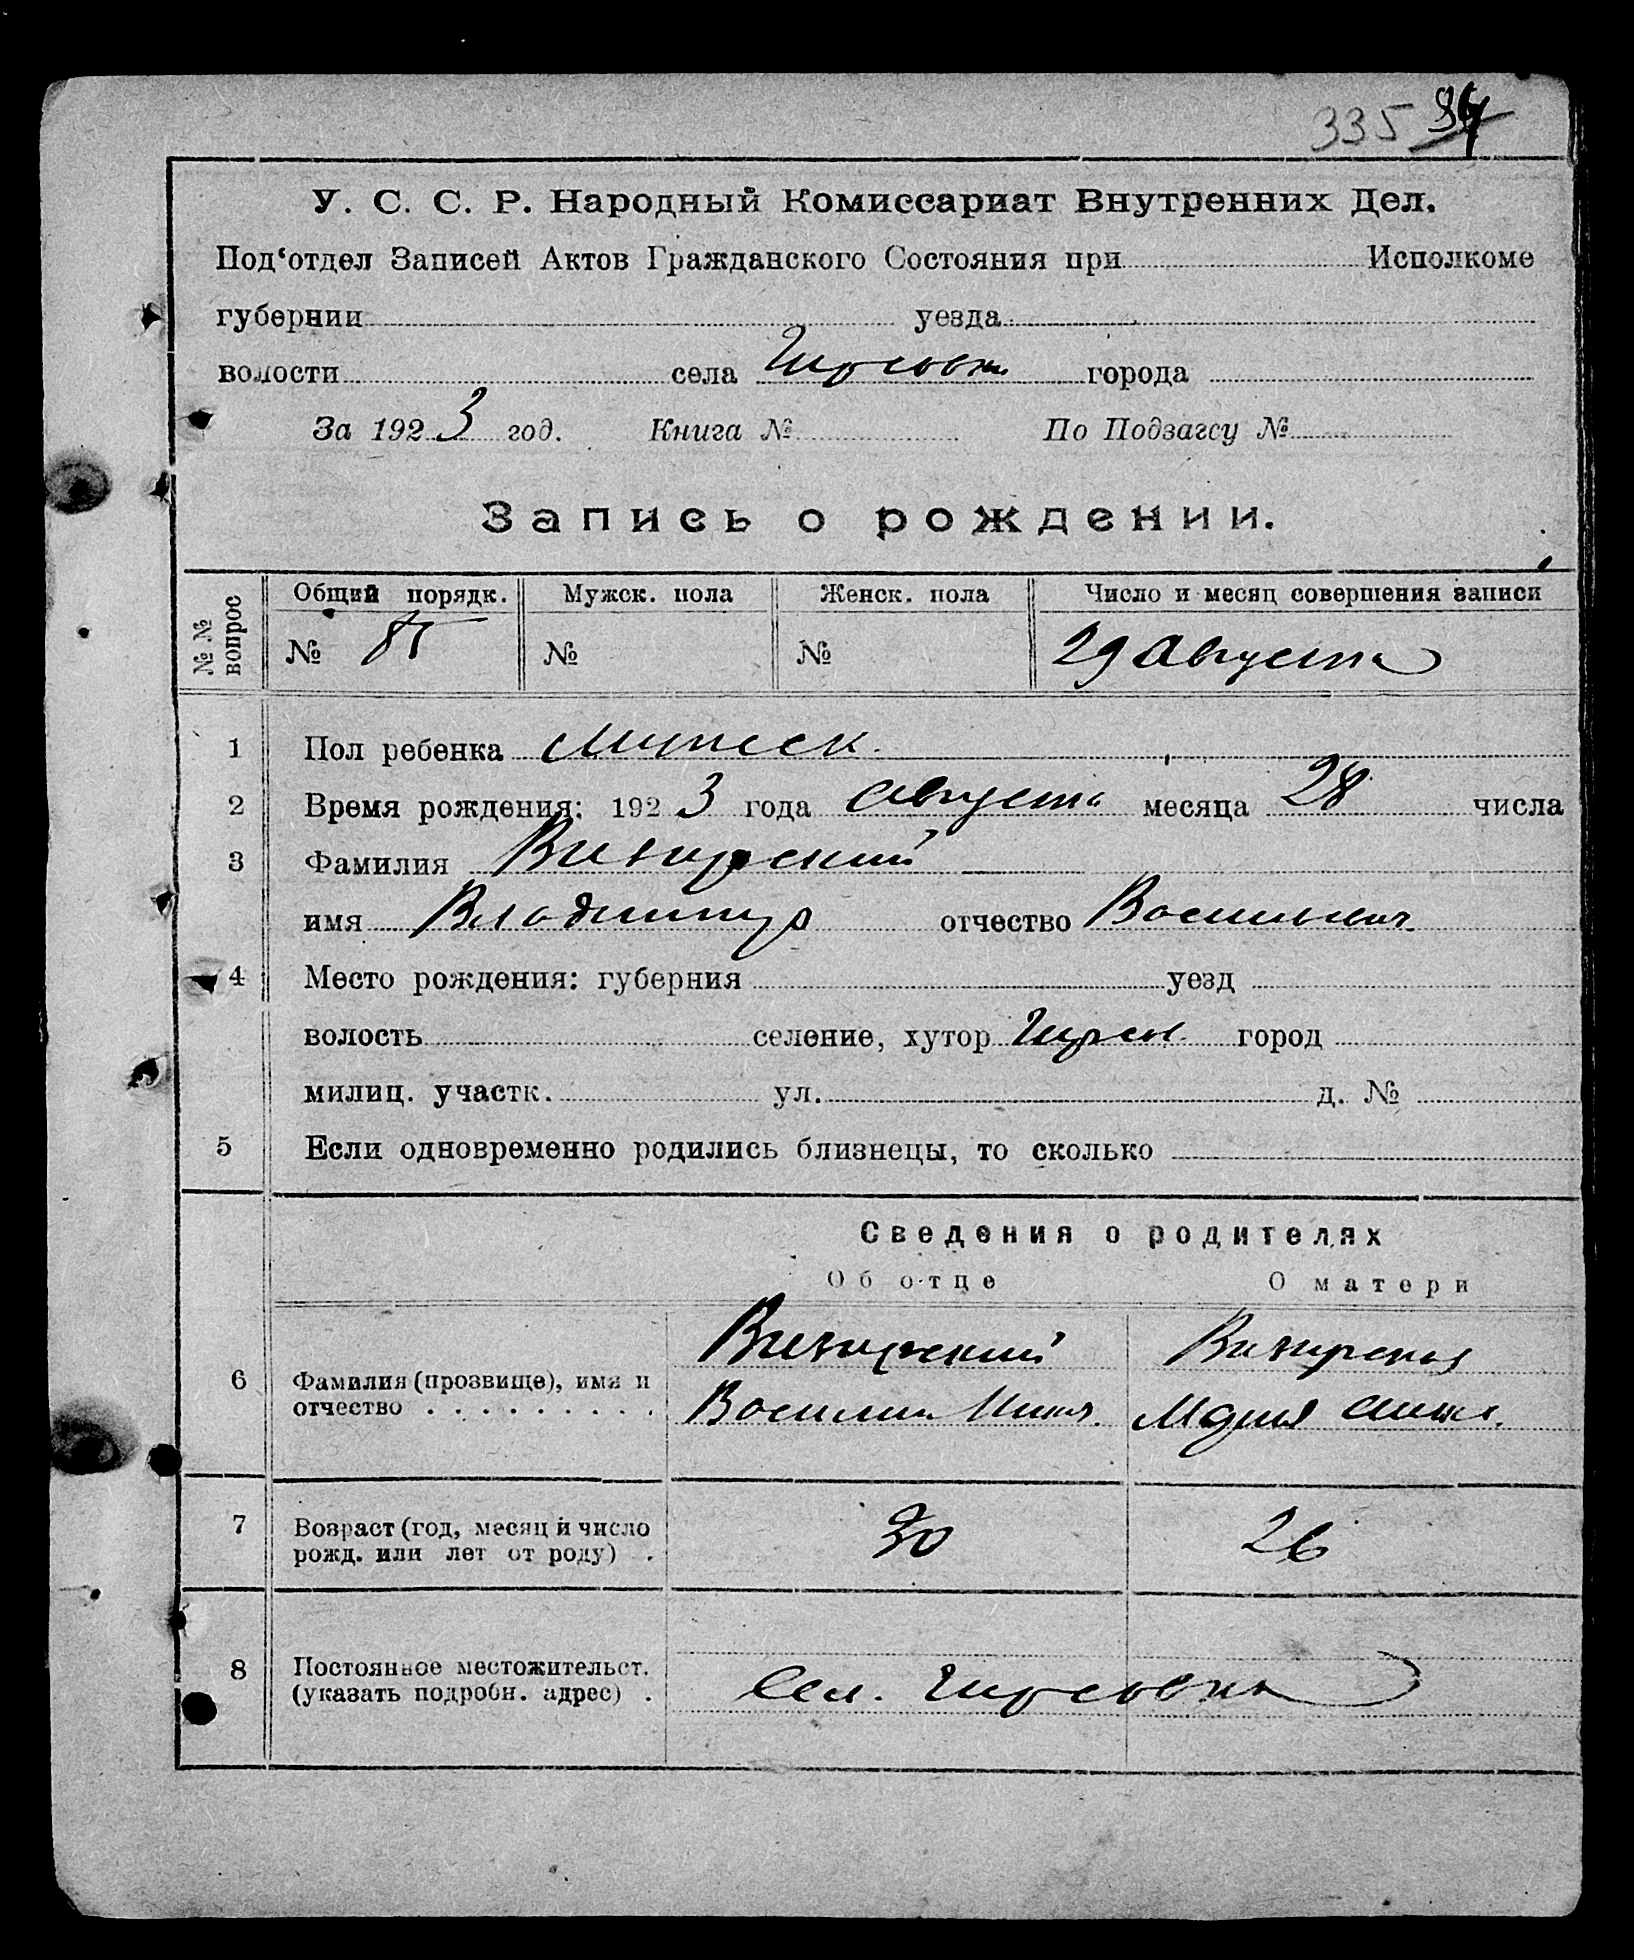 335 84
У. С. С. Р. Народный Комиссариат Внутренних Дел.
Под‘отдел Записей Актов Гражданского Состояния при Исполкоме
губернии уезда
волости села города
За 1923 год. Книга № По Подзагсу №
Запись о рождении.
№№ вопрос Общий порядк. Мужск. пола Женск. пола Число и месяц совершения записи
№ 85 № № 29 Августа
1 Пол ребенка Мужеск.
2 Время рождения: 1923 года Августа месяца 28 числа
3 Фамилия
имя Владимир отчество Васильевич
4 Место рождения: губерния уезд
волость селение, хутор город
милиц. участк. ул. д. №
5 Если одновременно родились близнецы, то сколько
Сведения о родителях
Об отце О матери
6 Фамилия (прозвище), имя и
отчество . . . . . . . . .
Василий Мария
7 Возраст (год, месяц и число
рожд. или лет от роду) . 30 26
8 Постоянное местожительст.
(указать подробн. адрес) . Сел.